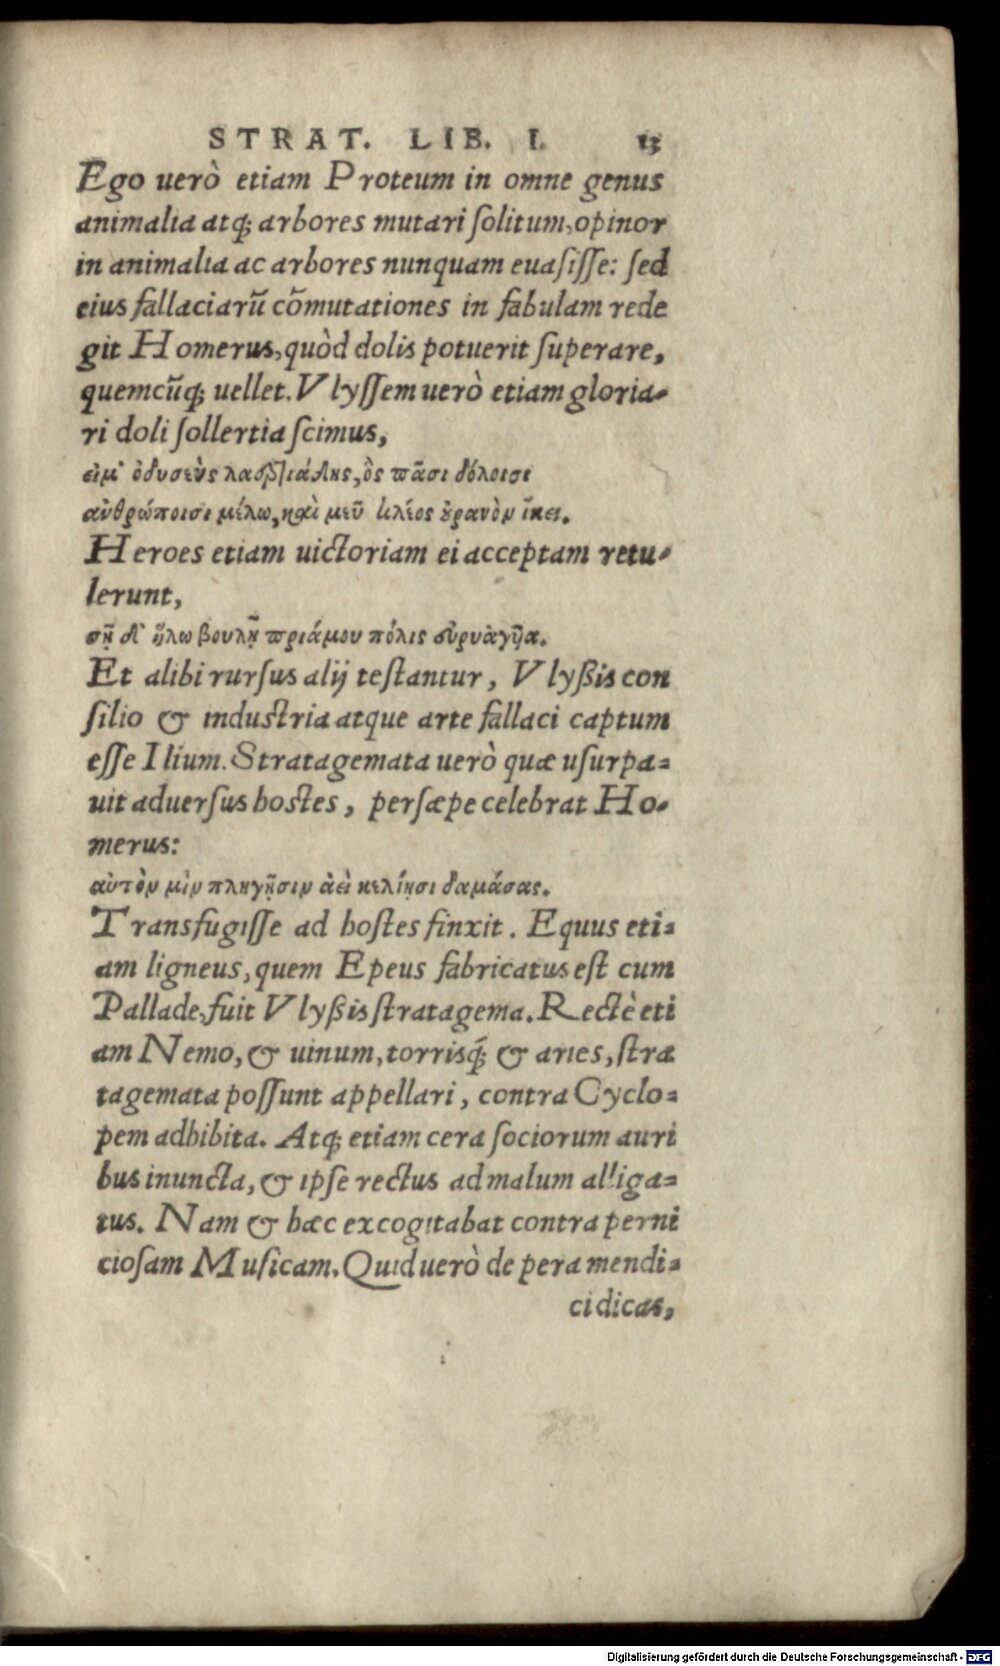 STRAT. LIB. I. 13
Ego uerò etiam Proteum in omne genus
animalia atq; arbores mutari ſolitum, opinor
in animalia ac arbores nunquam euaſiſſe: ſed
eius fallaciarũ cõmutationes in fabulam rede
git Homerus, quòd dolis potuerit ſuperare,
quemcũq; uellet. Vlyſſem uerò etiam gloria-
ri doli ſollertia ſcimus,
εἰμ' ὀδυσεὺς λαερτιάδης, ὃς πᾶσι δόλοισι
ἀνθρώποισι μέλω, καὶ μεῦ κλέος ὀρανὸν ἵκει.
Heroes etiam uictoriam ei acceptam retu-
lerunt,
σῇ δ' ἥλω βουλῇ πριάμου πόλις εὐρυάγυια.
Et alibi rurſus alij teſtantur, Vlyßis con
ſilio & induſtria atque arte fallaci captum
eſſe Ilium. Stratagemata uerò quæ uſurpa-
uit aduerſus hoſtes, perſæpe celebrat Ho-
merus:
αὐτὸν μὶν πληγῇσιν ἀεὶ κελίῃσι δαμάσας.
Transfugiſſe ad hoſtes finxit. Equus eti-
am ligneus, quem Epeus fabricatus eſt cum
Pallade, fuit Vlyßis ſtratagema. Rectè eti
am Nemo, & uinum, torrisq́; & aries, ſtra
tagemata poſſunt appellari, contra Cyclo-
pem adhibita. Atq; etiam cera ſociorum auri
bus inuncta, & ipſe rectus ad malum alliga-
tus. Nam & hæc excogitabat contra perni
cioſam Muſicam. Quid uerò de pera mendi-
ci dicas,
Digitalisierung gefördert durch die Deutsche Forschungsgemeinschaft - DFG